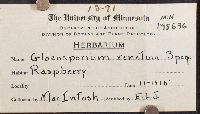 13-71
The University of Minnesota
MIN
195636
DEPARTMENT OF AGRICULTURE
DIVISION OF BOTANY AND PLANT PATHOLOGY
HERBARIUM
Name Gloeosporium venetum Speg.
Habitat Raspberry
Locality
Collected by MacIntosh Identified by